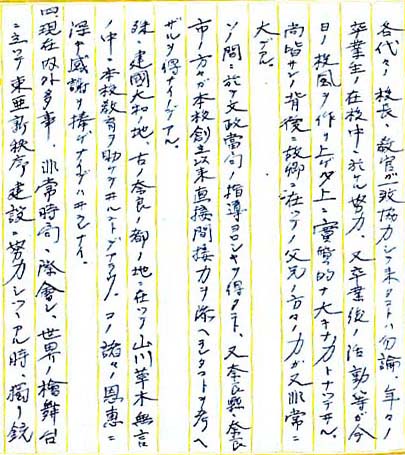 各代々ノ校長、教官ガ致協力シテ来タコトハ勿論、年々ノ
卒業生ノ在校中ニ於ケル努力、又卒業後ノ活動等ガ今
日ノ校風ヲ作リ上ゲタ上ニ實質的ナ大キナ力トナツテヰル。
尚皆サンノ背後ニ故郷ニ在ツテノ父兄ノ方々ノ力ガ又非常ニ
大デアル。
ソノ間ニ於テ文政當局ノ指導ヨロシキヲ得タコト、又奈良縣奈良
市ノ方々ガ本校創立以来直接間接力ヲ添ヘラレタコトヲ考ヘ
ザルヲ得ナイノデアル。
殊ニ建國大和ノ地、古ノ奈良ノ都ノ地ニ在ツテ山川草木無言
ノ中ニ本校教育ヲ助ケテヰルコトデアラウ。コノ諸々ノ恩恵ニ
深ク感謝ヲ捧ゲナケレバナラナイ。
四、現在内外多事、非常時局ニ際會シ、世界ノ檜舞台
ニ立ツテ東亜新秩序ノ建設ニ努力シツツアル時、獨リ銃